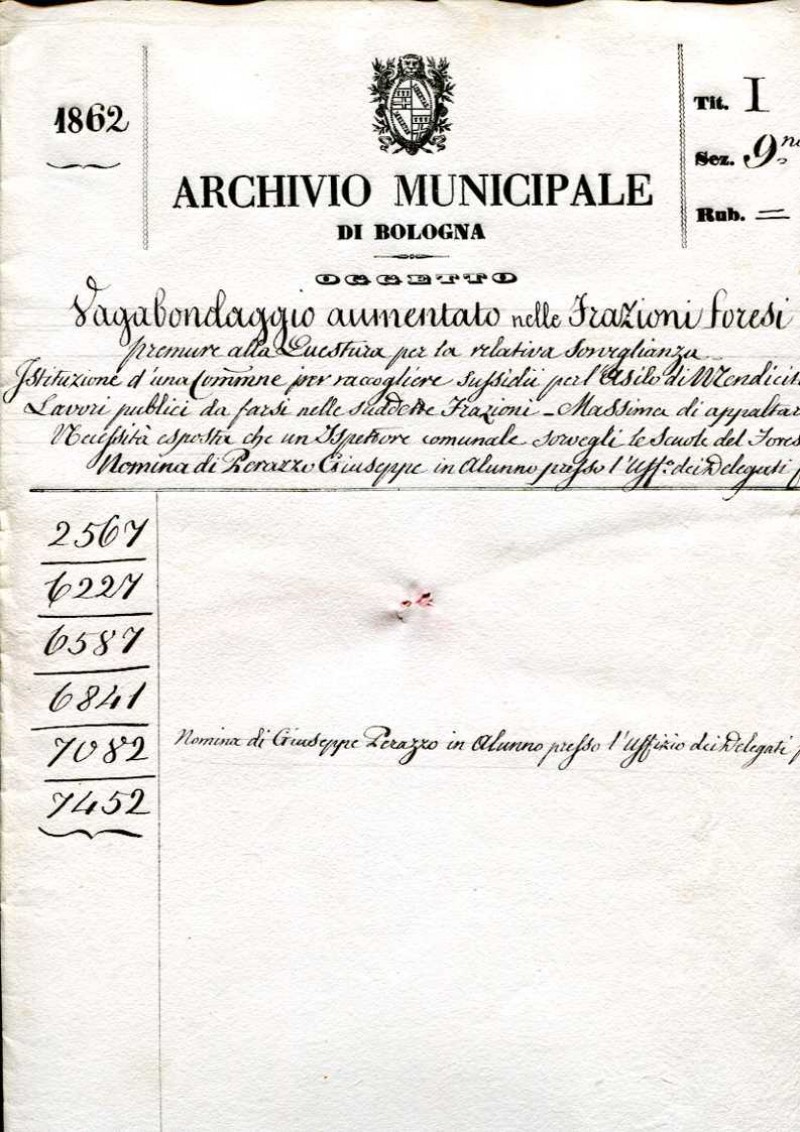 1862
Tit. I
Sez. 9.na
Rub. =
ARCHIVIO MUNICIPALE
DI BOLOGNA
OGGETTO
Vagabondaggio aumentato nelle Frazioni foresi
premure alla Questura per la relativa sorveglianza
Istituzione d'una Commne per raccogliere sussidii per l'Asilo di Mendicit
Lavori publici da farsi nelle suddette Frazioni - Massima di appaltar
Necessità esposta che un Ispettore comunale sorvegli le Scuole del Fores
Nomina di Perazzo Giuseppe in Alunno presso l'Uff.o dei Delegati
2567
6227
6587
6841
7082 Nomina di Giuseppe Perazzo in Alunno presso l'Uffizio dei Delegati
7452